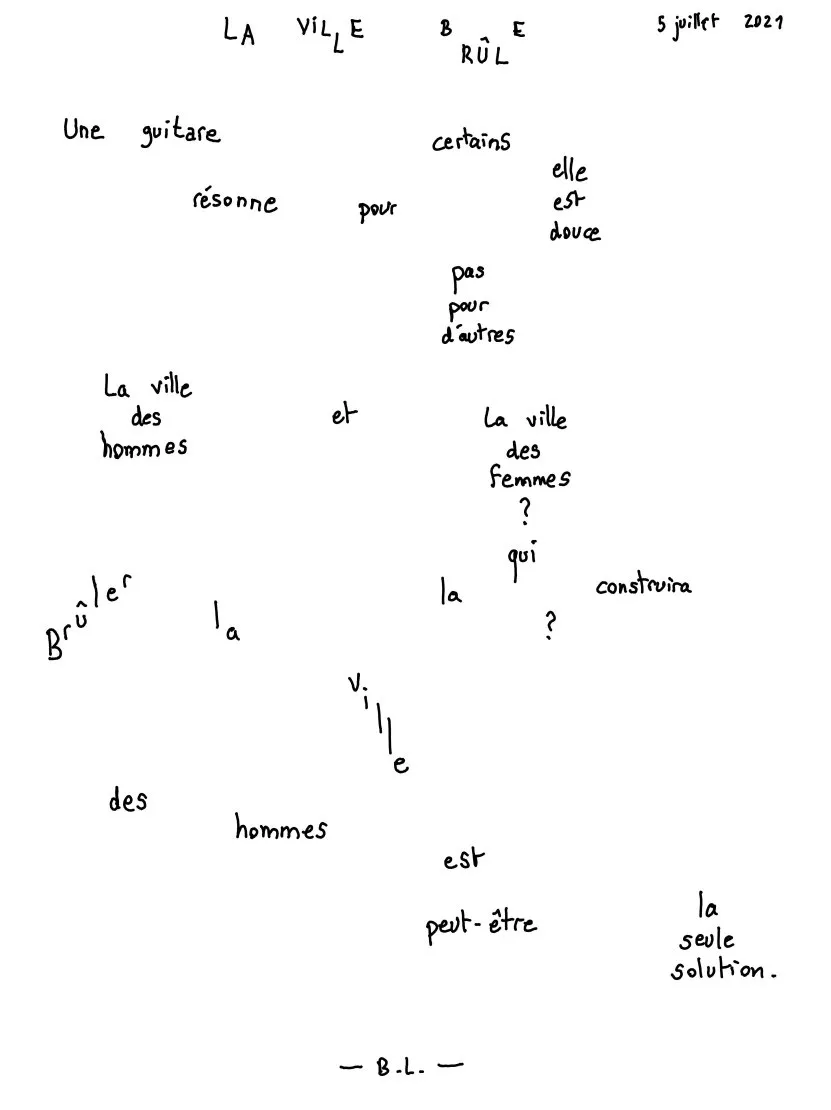 LA VILLE BRÛLE 5 juillet 2021
Une guitare
certains
résonne pour
elle
est
douce
pas
pour
d'autres
La ville
des
hommes
et
La ville
des
femmes
?
qui
la construira
?
Brûler la
ville
des
hommes
est
peut-être
la
seule
solution.
— B.L. —